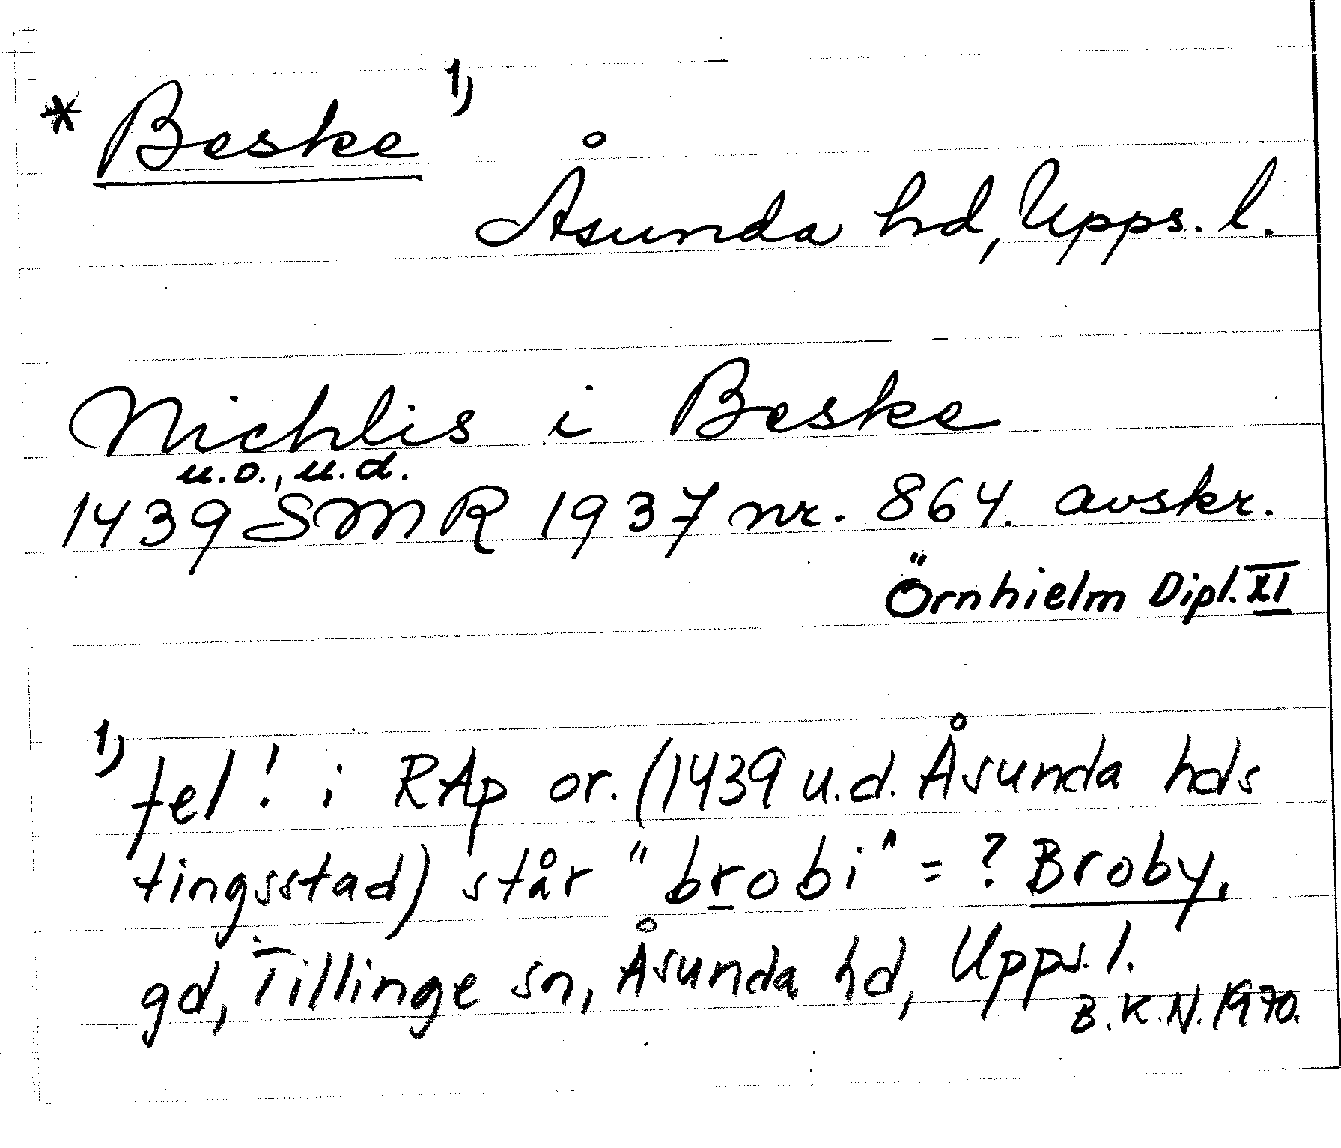 * Beske 1)
Åsunda hd, Upps. l.
Nichlis i Beske
u.o., u.d.
1439 SMR 1937 nr. 864. avskr.
Örnhielm Dipl. XI
1) fel! i RAp or. (1439 u.d. Åsunda hds
tingsstad) står "brobi" = ? Broby,
gd, Tillinge sn, Åsunda hd, Upps. l.
B.K.N. 1970.